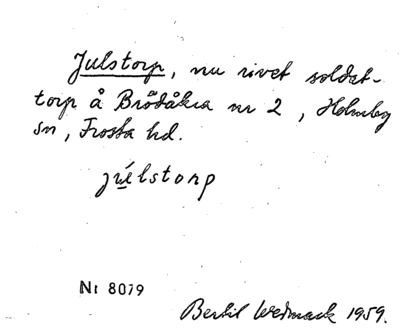 Julstorp, nu rivet soldat-
torp å Brödåkra nr 2, Holmby
sn, Frosta hd.
júlstorp
Nr 8079
Bertil 1959.